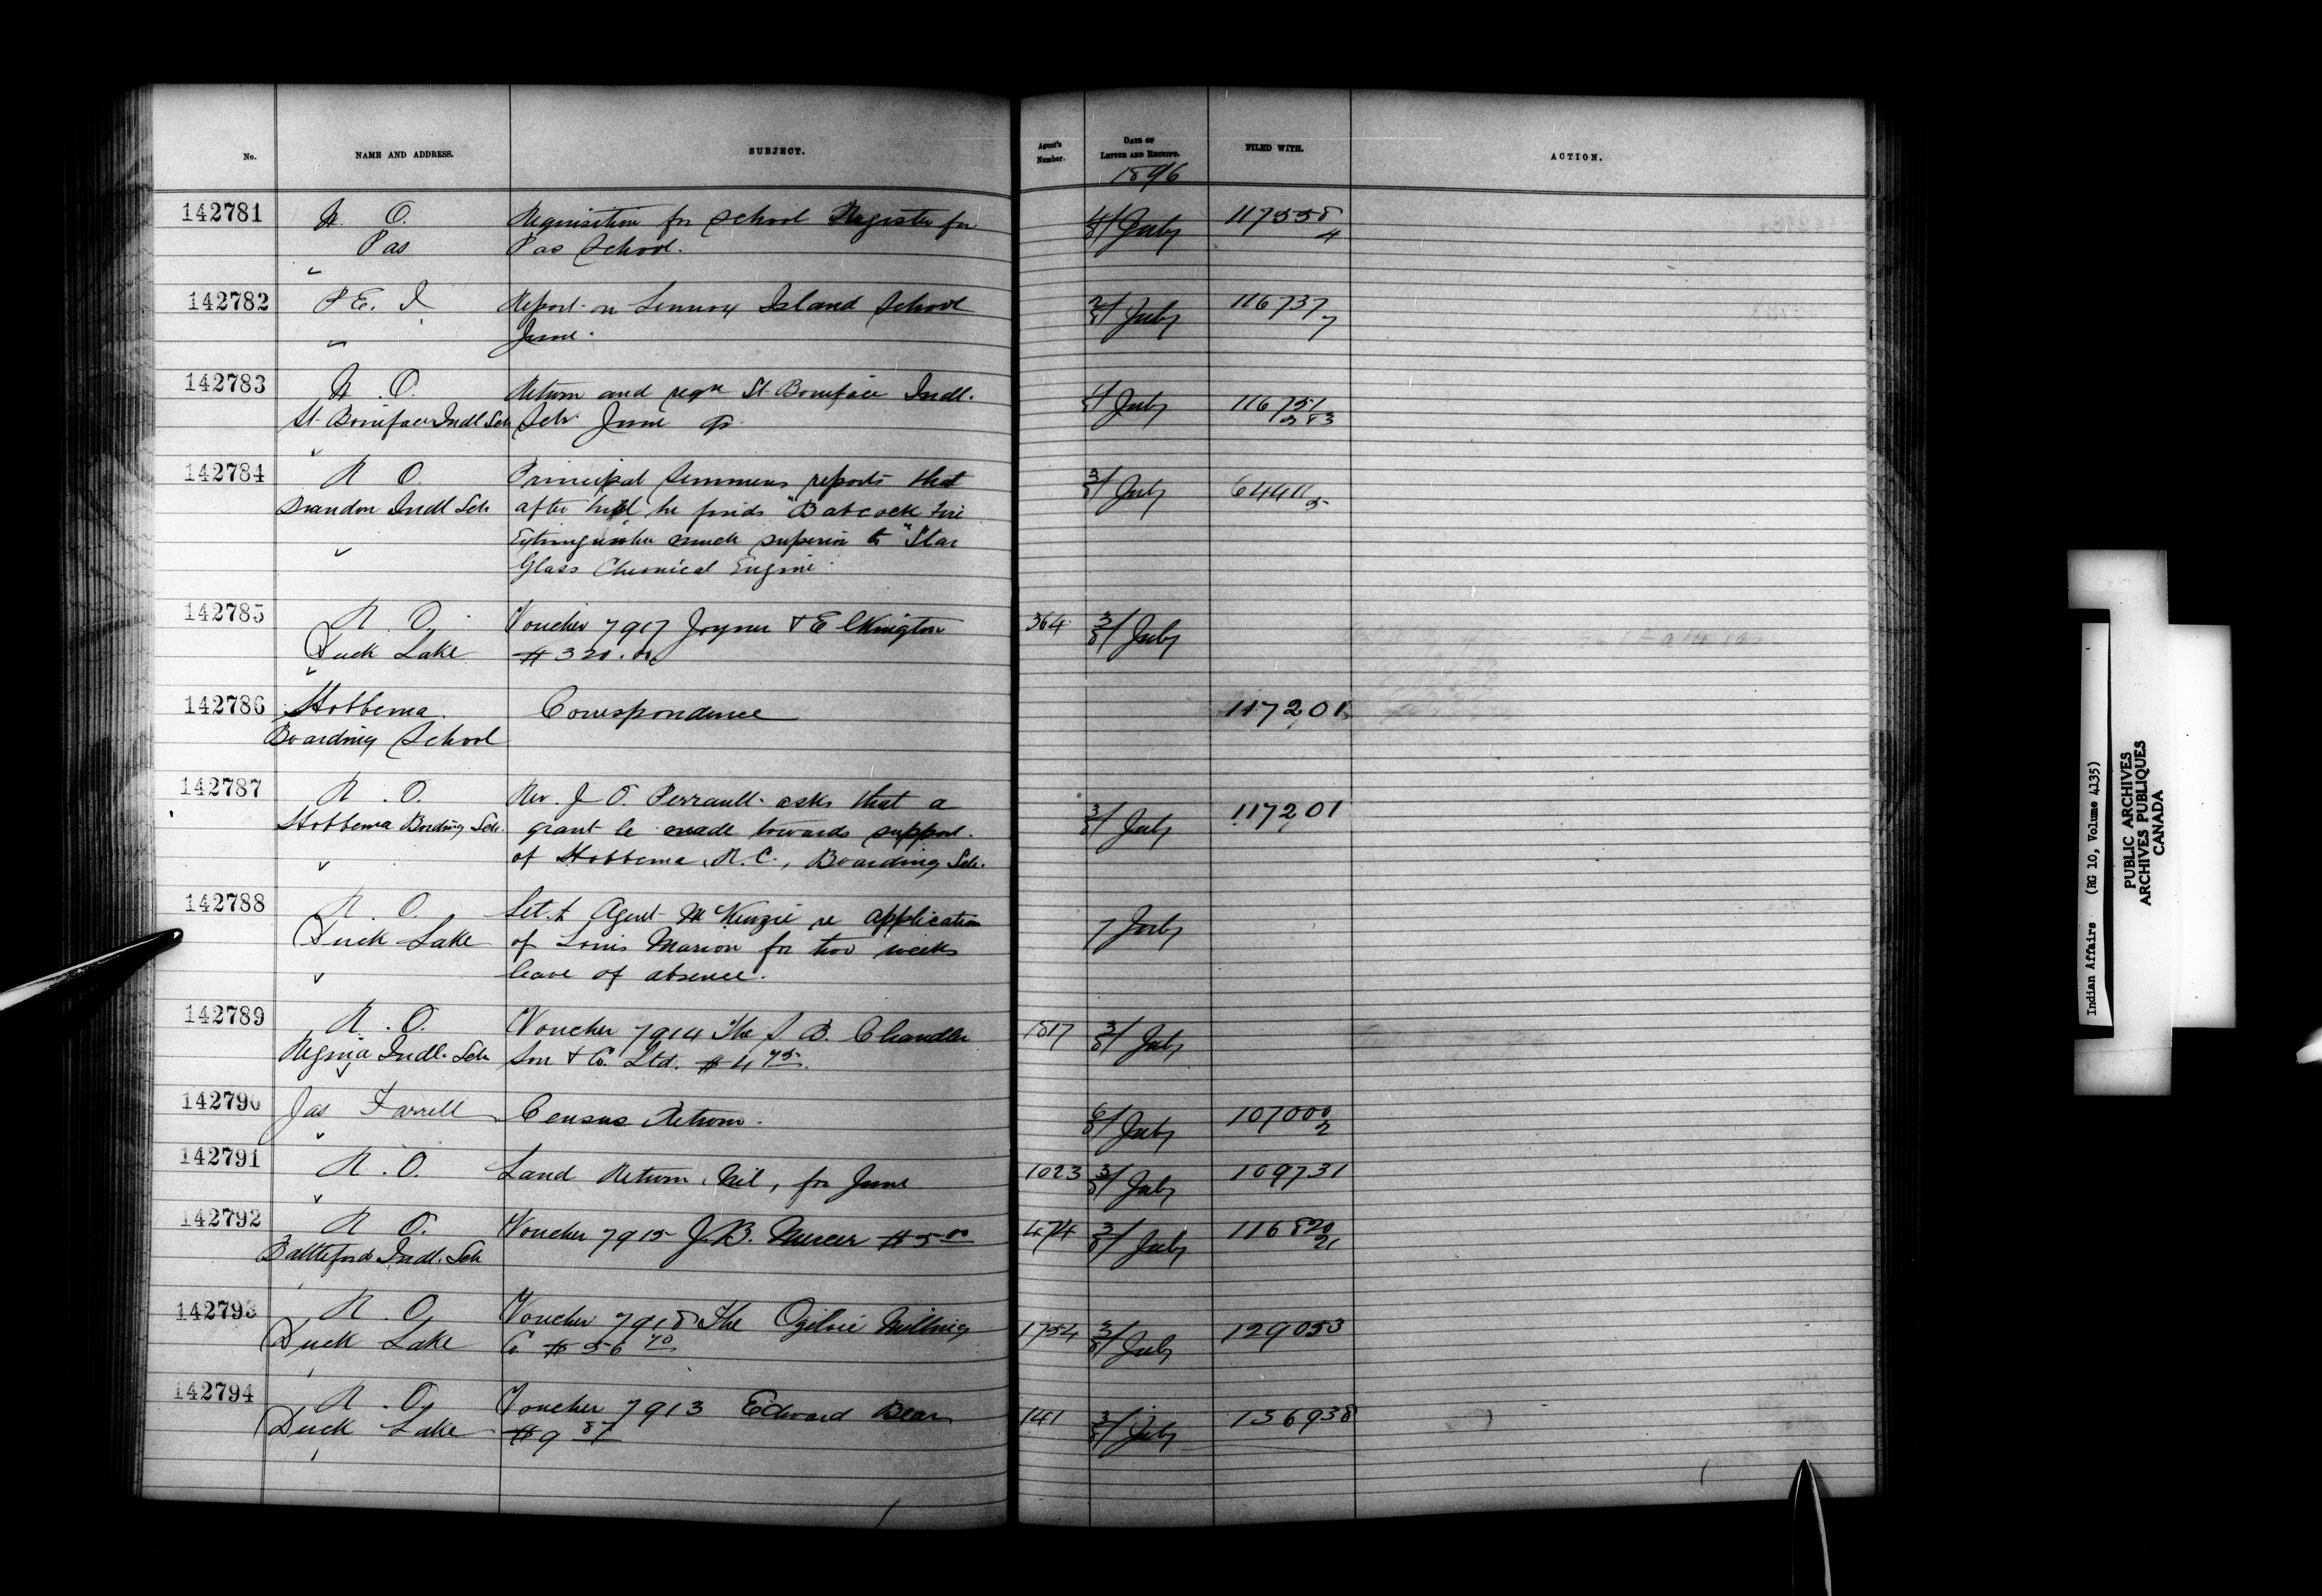 No. NAME AND ADDRESS. SUBJECT. Agent's Number. DATE OF LETTER AND RECEIPT. FILED WITH. ACTION.
1896
142781 R. O. Requisition for School Register for 4/8 July 117558
Pas Pas School. 4
142782 P. E. I. Report on Lennox Island School 2/8 July 116737
June. 7
142783 R. O. Return and reqn St. Boniface Indl. 4/8 July 116751
St. Boniface Indl Sch Sch. June qr. 283
142784 R. O. Principal Semmens reports that 3/8 July 64411
Brandon Indl Sch after he finds "Babcock Fire 5
Extinguisher much superior to "Star
Glass Chemical Engine
142785 R. O. Voucher 7917 Joyner & Elkington 364 3/8 July
Duck Lake $320.00
142786 Hobbema Correspondence 117201
Boarding School
142787 R. O. Rev. J. O. Perrault asks that a 3/8 July 117201
Hobbema Bording Sch. grant be made towards support
of Hobbema, R.C., Boarding Sch.
142788 R. O. Let. to Agent McKenzie re application 7 July
Duck Lake of Louis Marion for two weeks
leave of absence.
142789 R. O. Voucher 7914 The S. B. Chandler 1817 3/8 July
Regina Indl. Sch Son & Co. Ltd. $4 75
142790 Jas Farrell Census Return. 6/8 July 107000
2
142791 R. O. Land Return, Nil, for June 1023 3/8 July 109731
142792 R. O. Voucher 7915 J. B. Mercer $5 00 474 3/8 July 116820
Battleford Indl. Sch 21
142793 R. O. Voucher 7918 The Ogilvie Milling 1754 3/8 July 129053
Duck Lake Co. $56 70
142794 R. O. Voucher 7913 Edward Bear 141 3/8 July 136938
Duck Lake $9 87
Indian Affairs (RG 10, Volume 4135)
PUBLIC ARCHIVES
ARCHIVES PUBLIQUES
CANADA